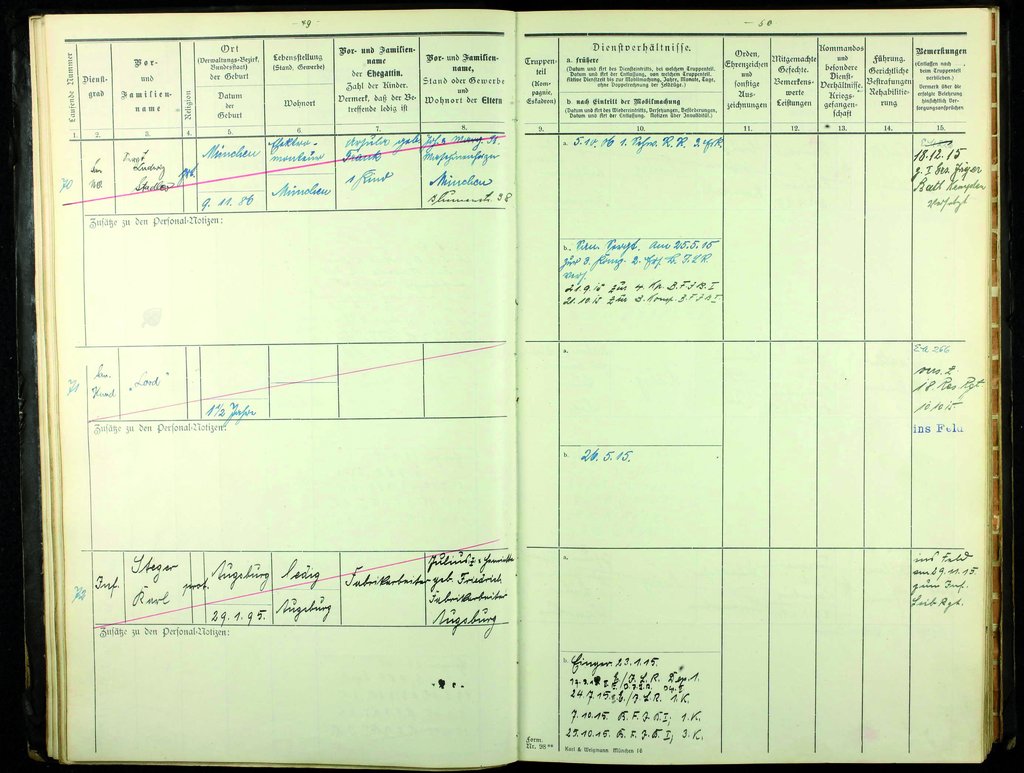 - 49 -
Laufende Nummer
Dienst-
grad
Vor-
und
Familien-
name
Religion
Ort
(Verwaltungs-Bezirk,
Bundesstaat)
der Geburt
Datum
der
Geburt
Lebensstellung
(Stand, Gewerbe)
Wohnort
Vor- und Familien-
name
der Ehegattin.
Zahl der Kinder.
Vermerk, daß der Be-
treffende ledig ist
Vor- und Familien-
name,
Stand oder Gewerbe
und
Wohnort der Eltern
1. 2. 3. 4. 5. 6. 7. 8.
70
Ludwig
Stadler
München
9. 11. 86
Elektro-
monteur
München
Ursula geb.
Frank
1 Kind
München
Blumenstr. 38
Zusätze zu den Personal-Notizen:
71
Hund
"Lord"
1 1/2 Jahre
Zusätze zu den Personal-Notizen:
72
Inf.
Steger
Karl
prot.
Augsburg
29. 1. 95.
ledig
Augsburg
Fabrikarbeiter
Julius u. Henriette
geb. Friedrich
Fabrikarbeiter
Augsburg
Zusätze zu den Personal-Notizen:
- 50
Truppen-
teil
(Kom-
pagnie,
Eskadron)
Dienstverhältnisse.
a. frühere
(Datum und Art des Diensteintritts, bei welchem Truppenteil.
Datum und Art der Entlassung, von welchem Truppenteil.
Aktive Dienstzeit bis zur Mobilmachung, Jahre, Monate, Tage,
ohne Doppelrechnung der Feldzüge.)
b. nach Eintritt der Mobilmachung
(Datum und Art des Wiedereintritts, Versetzungen, Beförderungen,
Datum und Art der Entlassung. Notizen über Invalidität.)
Orden,
Ehrenzeichen
und
sonstige
Aus-
zeichnungen
Mitgemachte
Gefechte.
Bemerkens-
werte
Leistungen
Kommandos
und
besondere
Dienst-
Verhältnisse.
Kriegs-
gefangen-
schaft
Führung.
Gerichtliche
Bestrafungen
Rehabilitie-
rung
Bemerkungen
(Entlassen nach
dem Truppenteil
verblieben.)
Vermerk über die
erfolgte Belehrung
hinsichtlich Ver-
sorgungsansprüchen
9. 10. 11. 12. 13. 14. 15.
a. 5.10.06 1. Schw. R. R. 2. Esk
18.12.15
versetzt
b. San. Sergt. am 25.5.15
zur 3. Komp. 2. Ers. B. I. L. R.
vers.
21.9.15 zur 4. Kp. B. F. J. B. I
21.10.15 zur 3. Komp. B. F. J. B. I
a.
vers. z.
18. Res. Rgt.
10.10.15.
ins Feld
b. 26.5.15.
a.
ins Feld
am 29.11.15.
zum Inf.
Leib Rgt.
b. Einger. 23.1.15.
24.7.15. E/J. L. R. 1. K.
7.10.15. R. F. J. B. I; 1. K.
29.10.15. R. F. J. B. I; 3. K.
Form.
Nr. 98**
Karl & Weigmann München 16